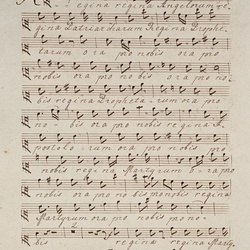 regina regina Angelorum re
gina Patriarcharum Regina Prophe
tarum ora pro nobis ora pro
nobis ora pro nobis ora pro no
bis regina Prophetarum ora pro
no bis ora pro nobis regina A
postolorum ora pro nobis pro
nobis regina Martyrum ora pro
nobis ora pro nobis regina
Martyrum ora pro nobis pro no
bis regina regina Marty